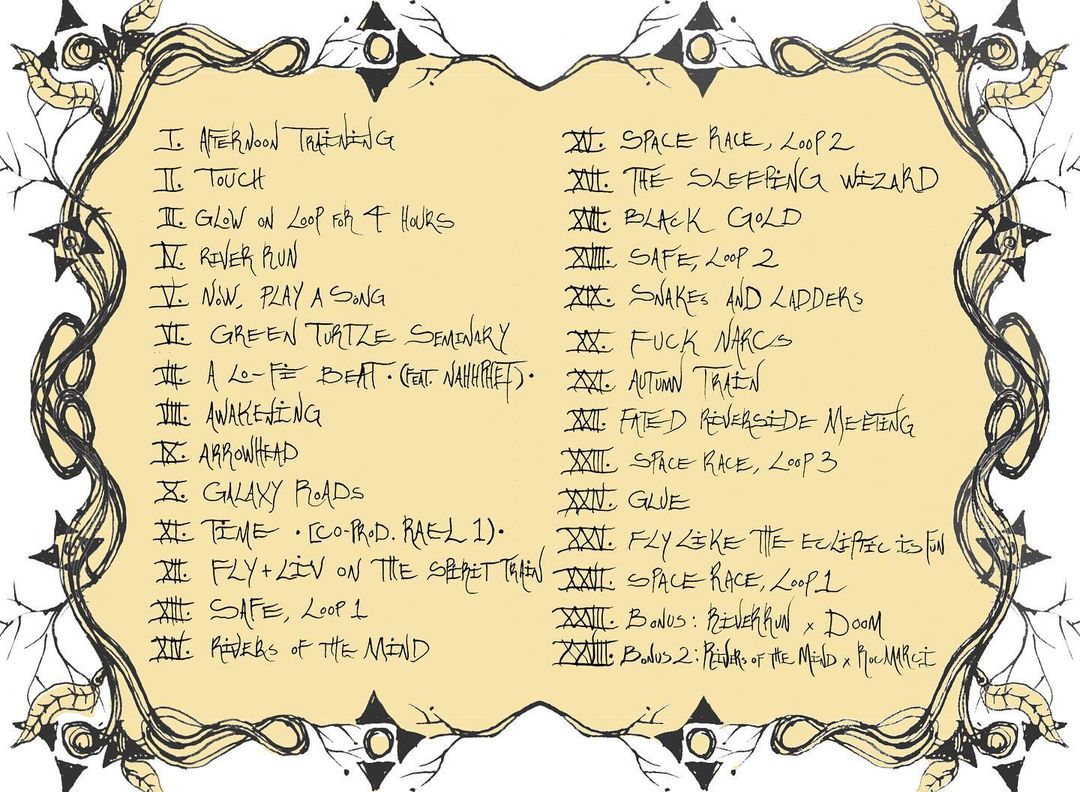 I. AFTERNOON TRAINING
II. TOUCH
III. GLOW ON LOOP FOR 4 HOURS
IV. RIVER RUN
V. NOW, PLAY A SONG
VI. GREEN TURTLE SEMINARY
VII. A LO-FI BEAT · (FEAT. NAHHPHET) ·
VIII. AWAKENING
IX. ARROWHEAD
X. GALAXY ROADS
XI. TIME · [CO-PROD. RAEL 1) ·
XII. FLY + LIV ON THE SPIRIT TRAIN
XIII. SAFE, LOOP 1
XIV. RIVERS OF THE MIND
XV. SPACE RACE, LOOP 2
XVI. THE SLEEPING WIZARD
XVII. BLACK GOLD
XVIII. SAFE, LOOP 2
XIX. SNAKES AND LADDERS
XX. FUCK NARCS
XXI. AUTUMN TRAIN
XXII. FATED RIVERSIDE MEETING
XXIII. SPACE RACE, LOOP 3
XXIV. GLUE
XXV. FLY LIKE THE ECLIPTIC IS FUN
XXVI. SPACE RACE, LOOP 1
XXVII. BONUS: RIVER RUN x DOOM
XXVIII. BONUS 2: RIVERS OF THE MIND x ROC MARCI